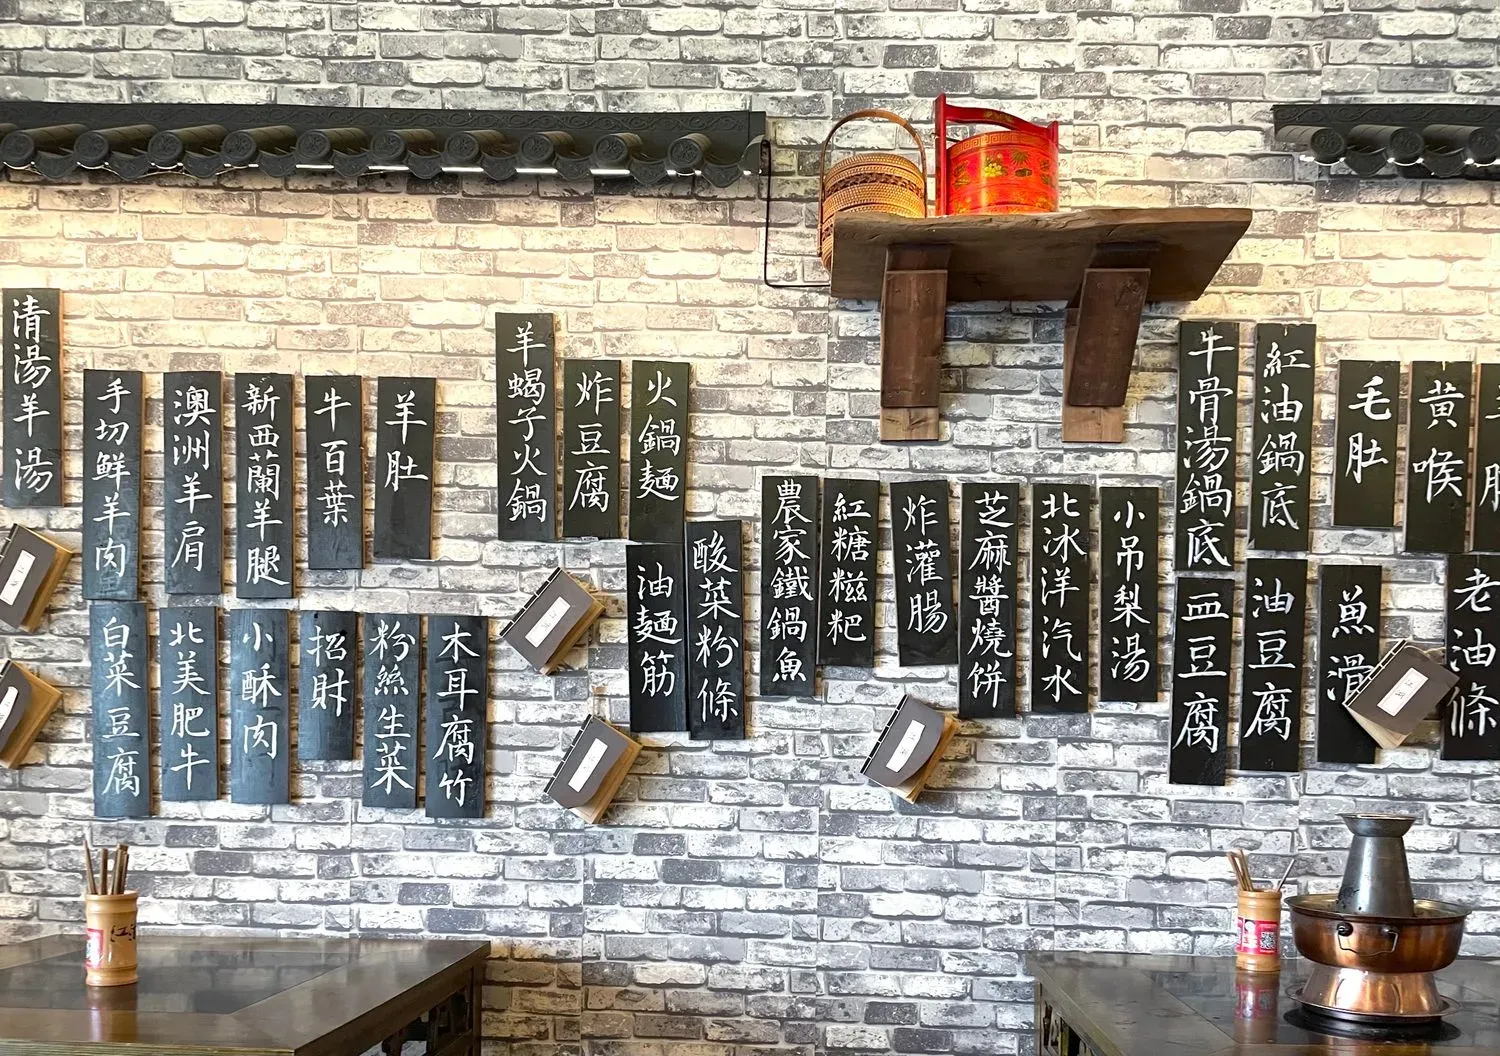 清湯羊湯
手切鮮羊肉
澳洲羊肩
新西蘭羊腿
牛百葉
羊肚
白菜豆腐
北美肥牛
小酥肉
招財
粉絲生菜
木耳腐竹
羊蝎子火鍋
炸豆腐
火鍋麵
油麵筋
酸菜粉條
農家鐵鍋魚
紅糖糍粑
炸灌腸
芝麻醬燒餅
北冰洋汽水
小吊梨湯
牛骨湯鍋底
紅油鍋底
毛肚
黃喉
皿豆腐
油豆腐
魚滑
老油條